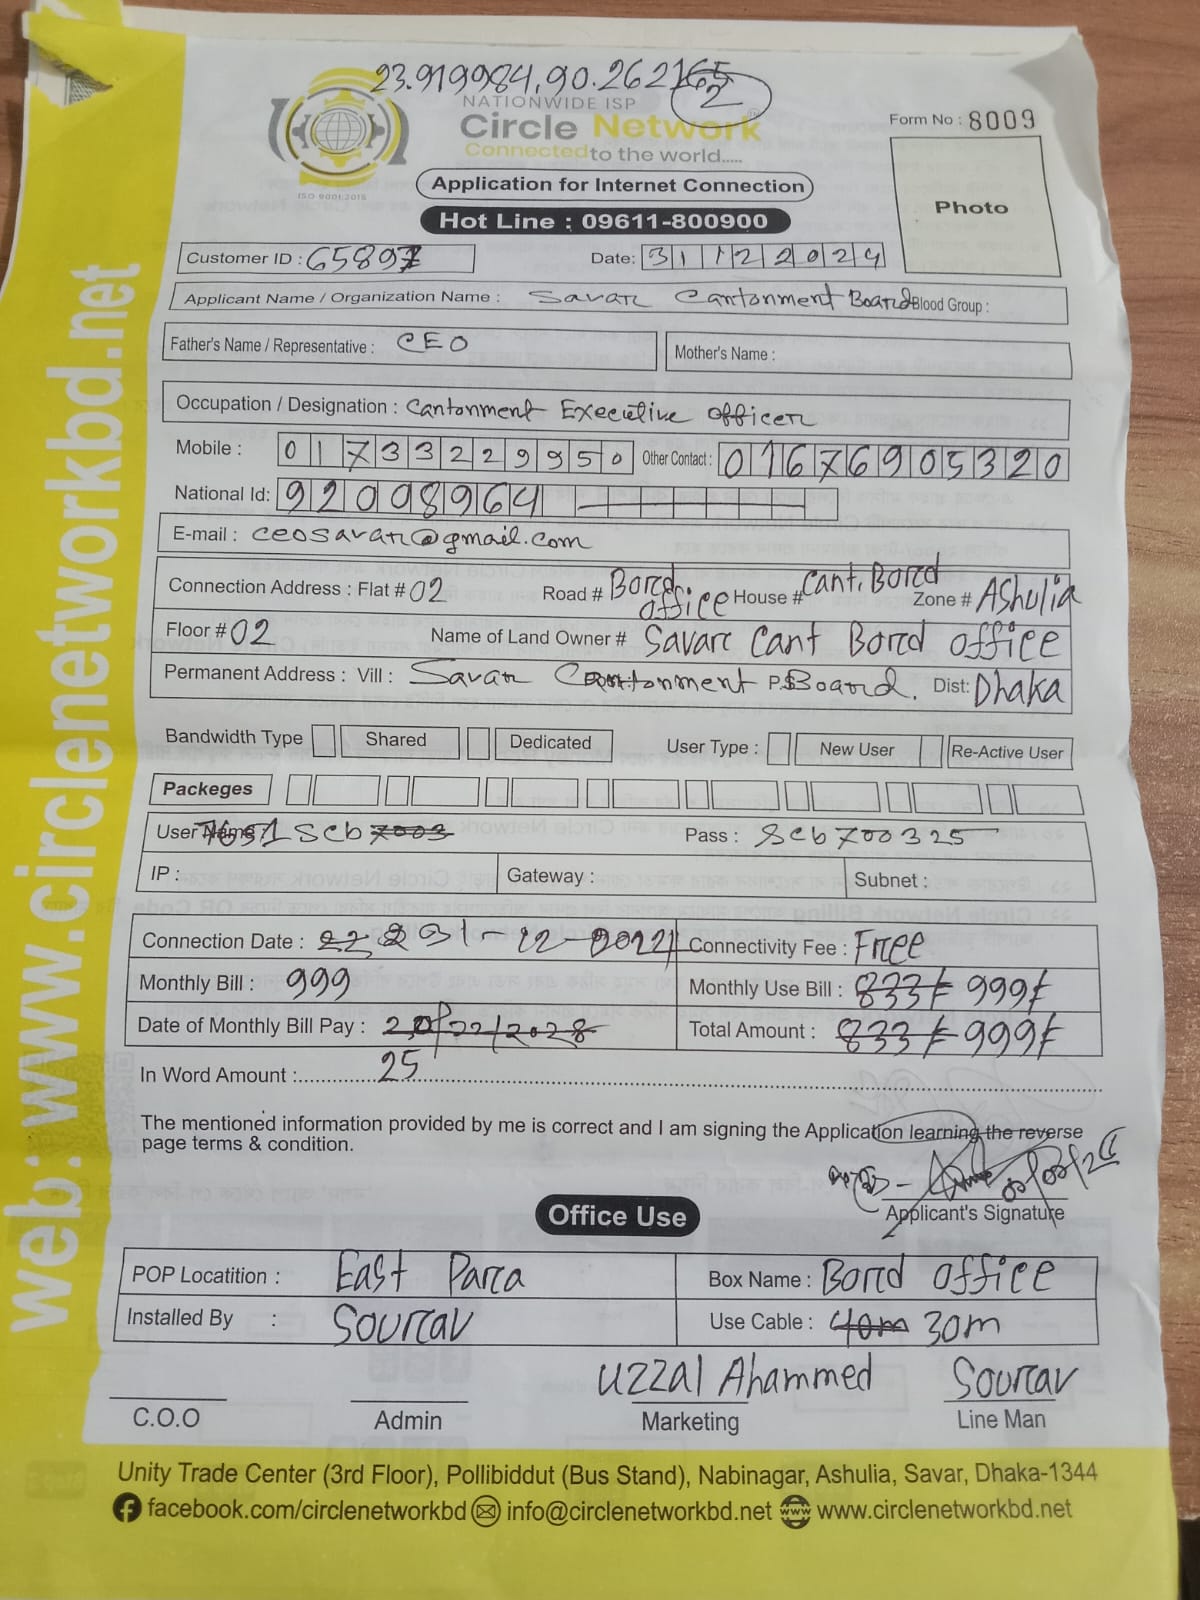 23.919984,90.262165
2
NATIONWIDE ISP
Circle Network
Connected to the world.....
ISO 9001:2015
Form No : 8009
Photo
Application for Internet Connection
Hot Line : 09611-800900
Customer ID : 65897 Date: 31122024
Applicant Name / Organization Name : Savar Cantonment Board Blood Group :
Father's Name / Representative : CEO Mother's Name :
Occupation / Designation : Cantonment Executive Officer
Mobile : 01733229950 Other Contact : 01676905320
National Id: 92098964
E-mail : ceosavar@gmail.com
Connection Address : Flat # 02 Road # Bord office House # Cant. Bord Zone # Ashulia
Floor # 02 Name of Land Owner # Savar Cant Bord office
Permanent Address : Vill : Savar Cantonment P.S Board. Dist: Dhaka
Bandwidth Type Shared Dedicated User Type : New User Re-Active User
Packeges
User Name : 7651 scb 7003 Pass : scb700325
IP : Gateway : Subnet :
Connection Date : 31-12-2024 Connectivity Fee : Free
Monthly Bill : 999 Monthly Use Bill : 833/= 999/=
Date of Monthly Bill Pay : 25 Total Amount : 833/= 999/=
In Word Amount :
The mentioned information provided by me is correct and I am signing the Application learning the reverse
page terms & condition.
Applicant's Signature
Office Use
POP Locatition : East Para Box Name : Bord office
Installed By : Sourav Use Cable : 40m 30m
Uzzal Ahammed Sourav
C.O.O Admin Marketing Line Man
Unity Trade Center (3rd Floor), Pollibiddut (Bus Stand), Nabinagar, Ashulia, Savar, Dhaka-1344
facebook.com/circlenetworkbd info@circlenetworkbd.net www.circlenetworkbd.net
web: www.circlenetworkbd.net